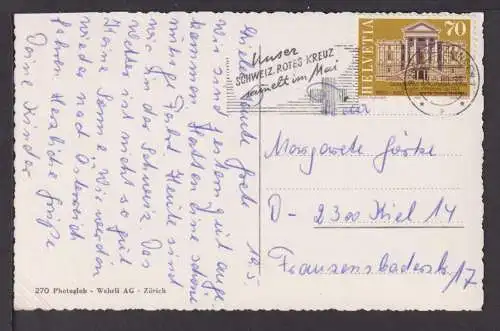 19.5.
Wir sind gestern gut ange-
kommen. Hatten eine schöne
Fahrt. Heute sind
wir in der Schweiz. Das
Wetter ist nicht so gut
Keine Sonne. Wir werden
wieder nach Österreich
fahren. Herzliche Grüße
Deine Kinder
270 Photoglob - Wehrli AG - Zürich
Unser
SCHWEIZ. ROTES KREUZ
sammelt im Mai
HELVETIA
70
Margarete Görke
D-2300 Kiel 14
Franzensbaderstr. 17